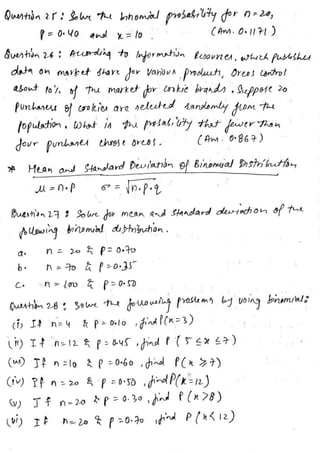 Question 25: Solve the binomial probability for n=20,
p = 0.40 and x = 10. (Ans. 0.1171)
Question 26: According to Information Resources, which publishes
data on market share for various products, Oreos control
about 10% of the market for cookie brands. Suppose 20
purchasers of cookies are selected randomly from the
population. What is the probability that fewer than
four purchasers choose oreos. (Ans. 0.867)
* Mean and Standard Deviation of Binomial Distribution
μ = n.p σ = √n.p.q
Question 27: Solve for mean and standard deviation of the
following binomial distribution.
a. n = 20 & p = 0.70
b. n = 70 & p = 0.35
c. n = 100 & p = 0.50
Question 28: Solve the following problems by using binomial:
(i) If n=4 & p = 0.10, find P(x=3)
(ii) If n=12 & p = 0.45, find P(5 ≤ x ≤ 7)
(iii) If n=10 & p = 0.60, find P(x ≥ 7)
(iv) If n = 20 & p = 0.50, find P(x=12)
(v) If n=20 & p = 0.30, find P(x>8)
(vi) If n=20 & p=0.70, find P(x<12)